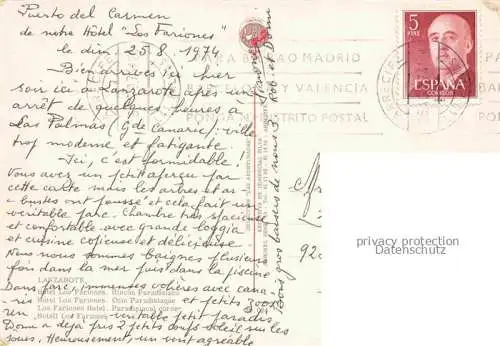 Puerto del Carmen
de notre Hôtel "Los Fariones"
le dim. 25.8.1974
Bien arrivés ici hier
soir ici à Lanzarote après un
arrêt de quelques heures à
Las Palmas (Gde Canarie): ville
trop moderne et fatigante.
Ici, c'est formidable!
Vous avez un petit aperçu par
cette carte mais les arbres et ar-
bustes ont poussé et cela fait un
véritable parc. Chambre très spacieuse
et confortable avec grande loggia
et cuisine copieuse et délicieuse
Nous nous sommes baignés plusieurs
fois dans la mer puis dans la piscine
LANZAROTE
Dans parc, immenses volières avec cana-
Hotel Los Fariones. Rincón Paradisíaco
ris et petits zoos
Hotel Los Fariones. Coin Paradisiaque
Los Fariones Hotel. Paradisiacal corner
véritable petit paradis
Hotell Los Fariones.
Domi a déjà pris 2 petits coups soleil sur les
Heureusement, un vent agréable
Bons gros baisers de nous 3
Rob. et Domi
PARA BILBAO MADRID
BARCELONA Y VALENCIA
PONGA Nº DISTRITO POSTAL
ARRECIFE
5
PTAS
ESPAÑA
CORREOS
92
privacy protection
Datenschutz